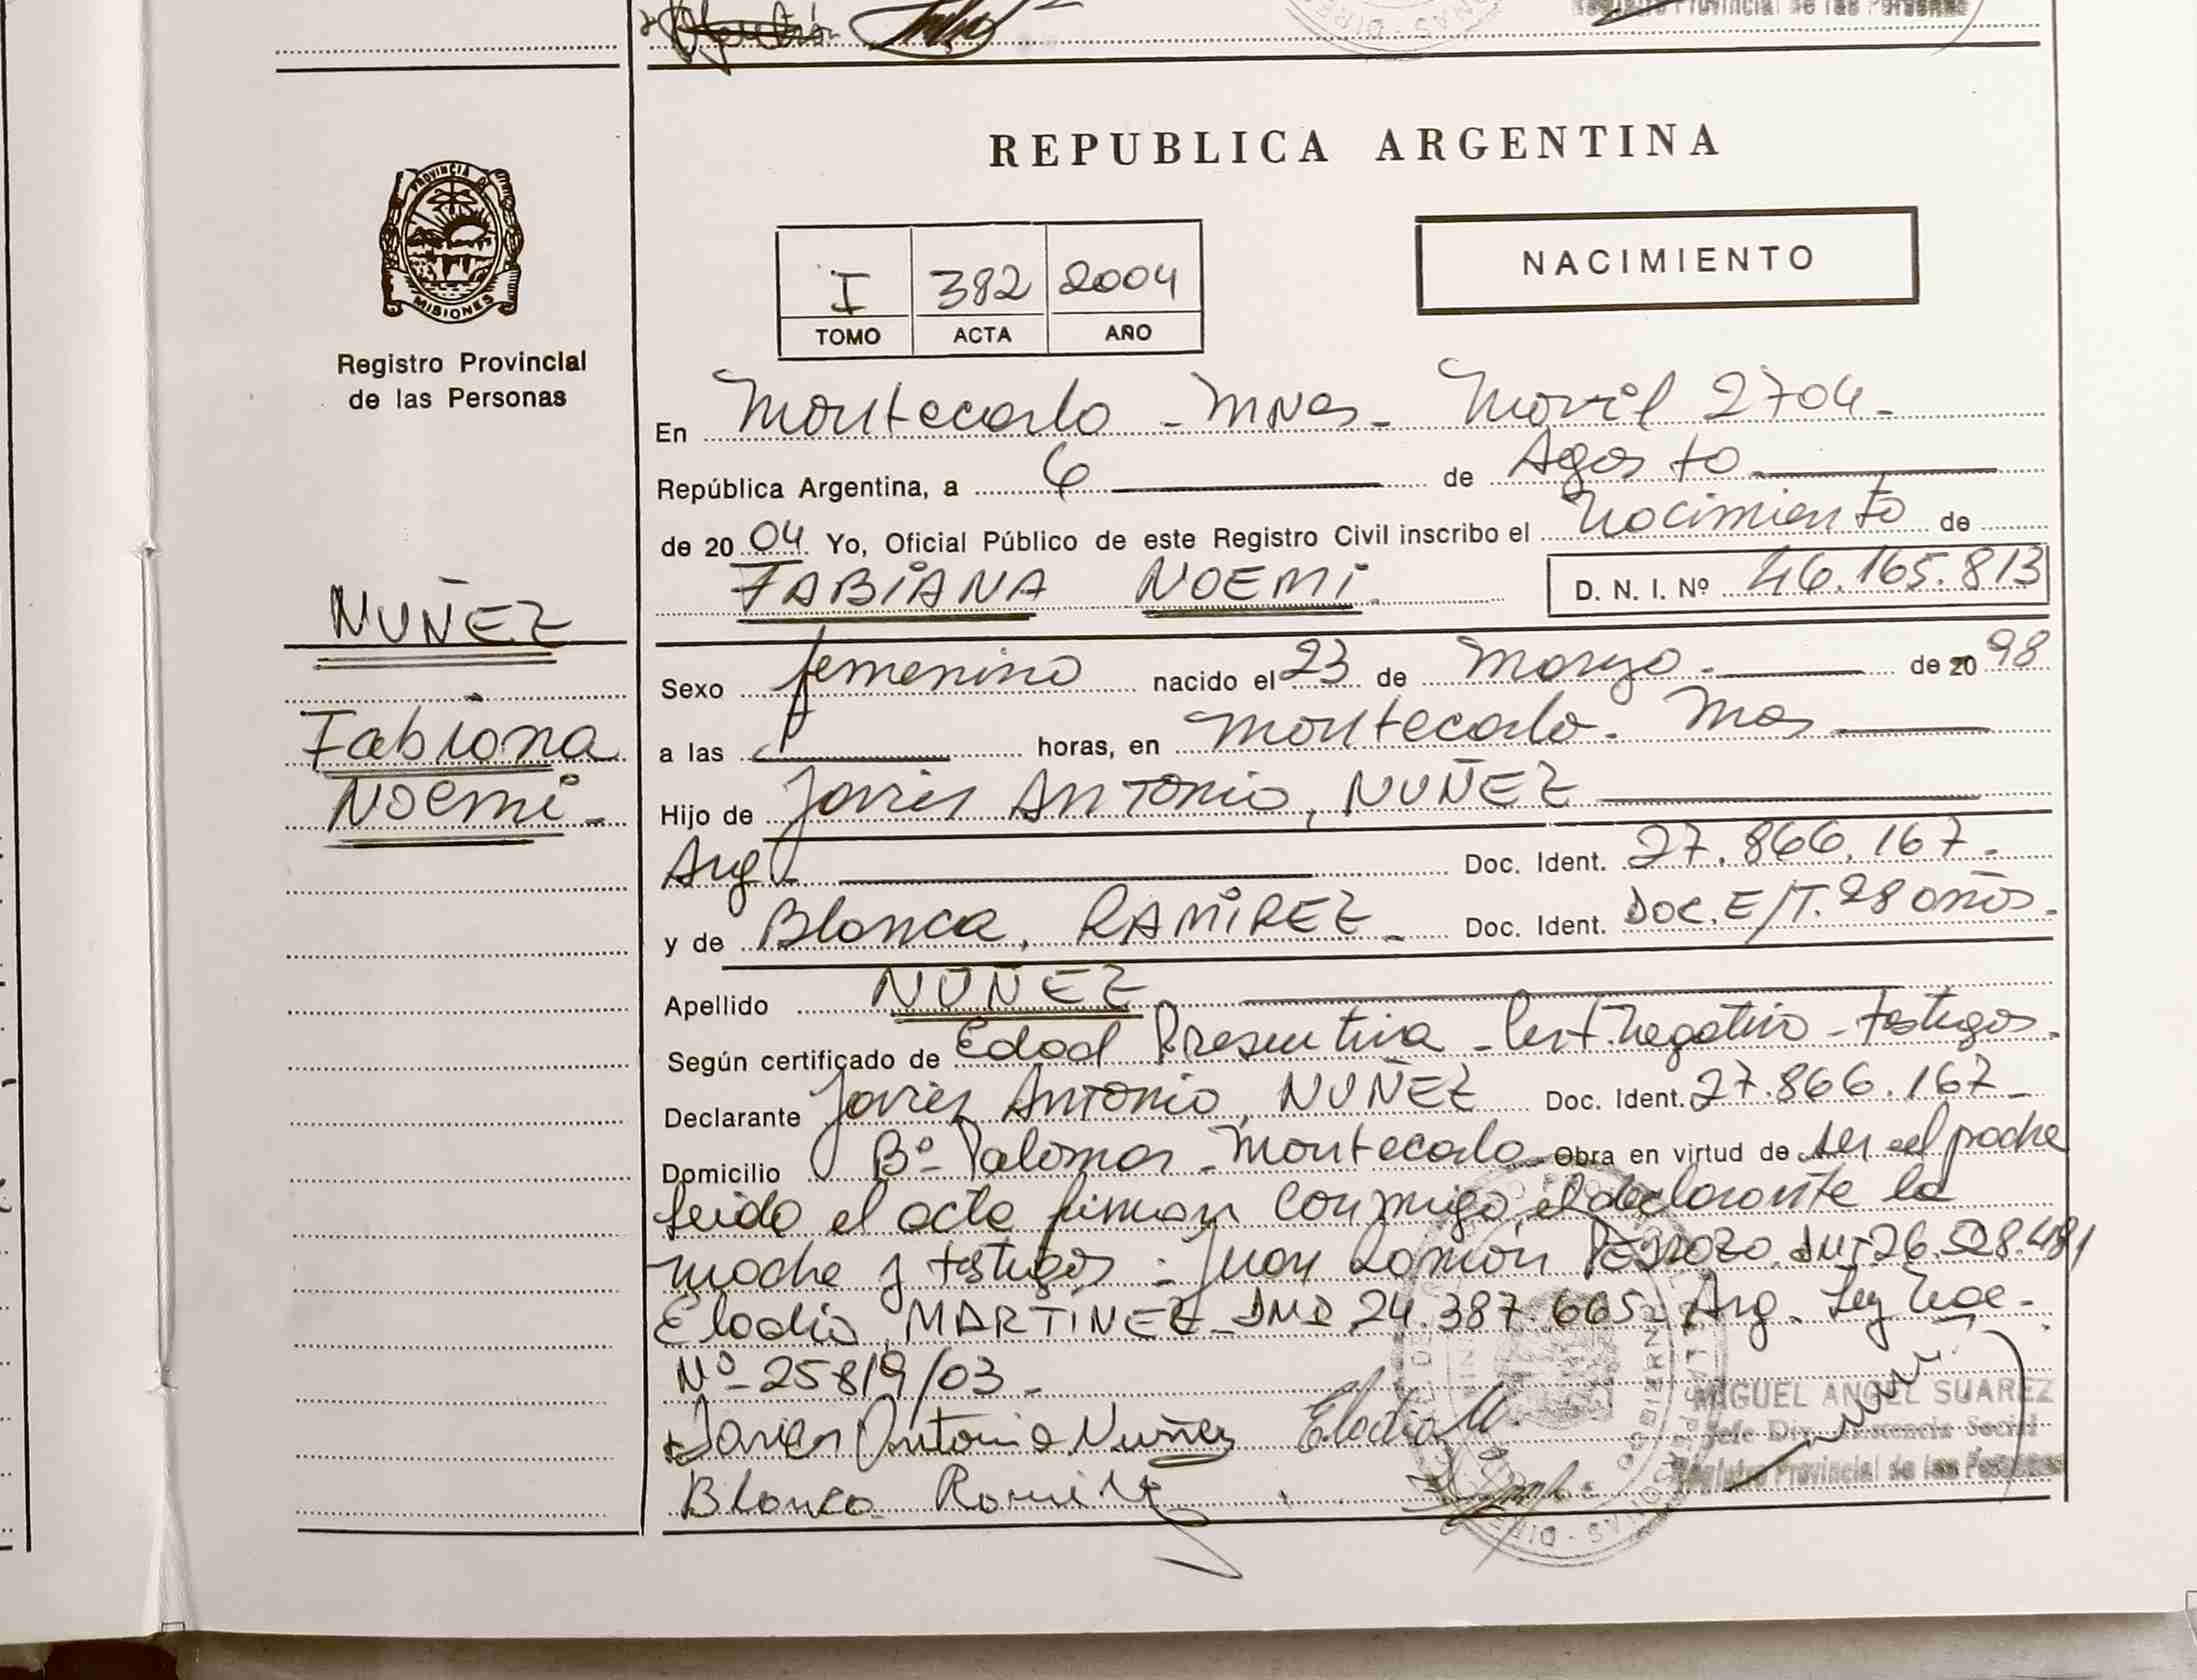 REPUBLICA ARGENTINA
PROVINCIA D
MISIONES
Registro Provincial
de las Personas
NACIMIENTO
I 382 2004
TOMO ACTA AÑO
En Montecarlo - Mnes - Movil 2704 -
República Argentina, a 6 de Agosto
de 2004 Yo, Oficial Público de este Registro Civil inscribo el nacimiento de
FABIANA NOEMI - D. N. I. Nº 46.165.813
NUÑEZ
Fabiana
Noemi -
Sexo femenino nacido el 23 de Marzo - de 20 98
a las horas, en Montecarlo - Mnes
Hijo de Javier ANTONIO, NUÑEZ
Arg - Doc. Ident. 27.866.167 -
y de Blanca, RAMIREZ - Doc. Ident. Doc. E/T. 28 años -
Apellido NUÑEZ
Según certificado de Edad Presuntiva - Cert. Negativo - testigos -
Declarante Javier ANTONIO, NUÑEZ Doc. Ident. 27.866.167 -
Domicilio Bº - Palomar - Montecarlo - Obra en virtud de ser el padre
leido el acta firman conmigo, el declarante la
madre y testigos : Juan Ramón 26.528.481
Elodia, MARTINEZ - 24.387.665 - Arg - Ley Nac -
Nº - 25819/03 -
Javier Antonio Nuñez Elodia M.
Blanca Ramirez
MIGUEL ANGEL SUAREZ
Jefe Social
Registro Provincial de las Personas